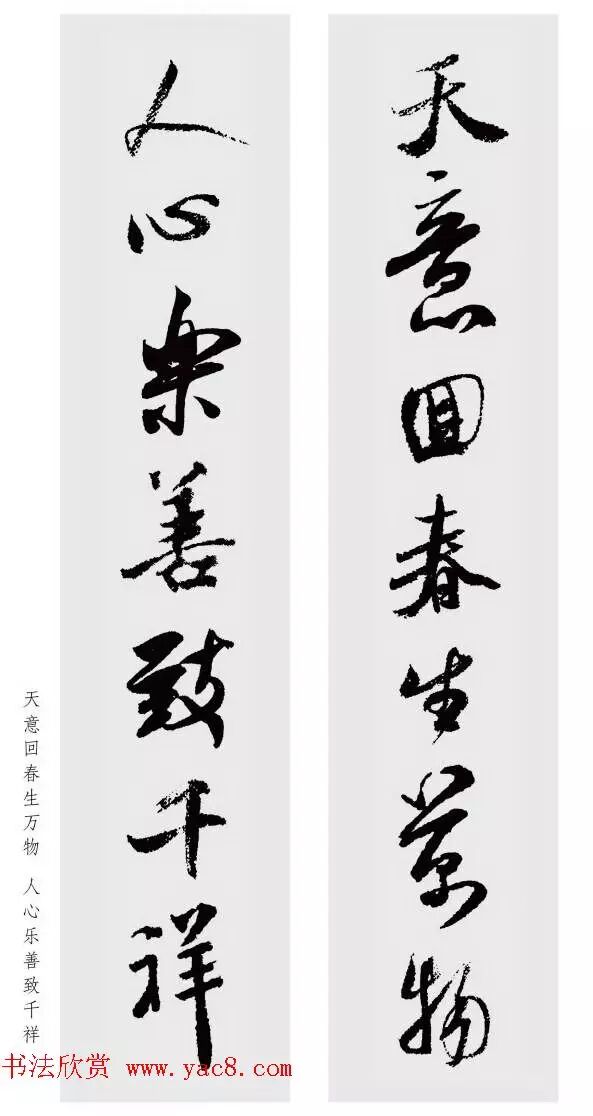 天意回春生萬物
人心樂善致千祥
天意回春生万物 人心乐善致千祥
书法欣赏 www.yac8.com